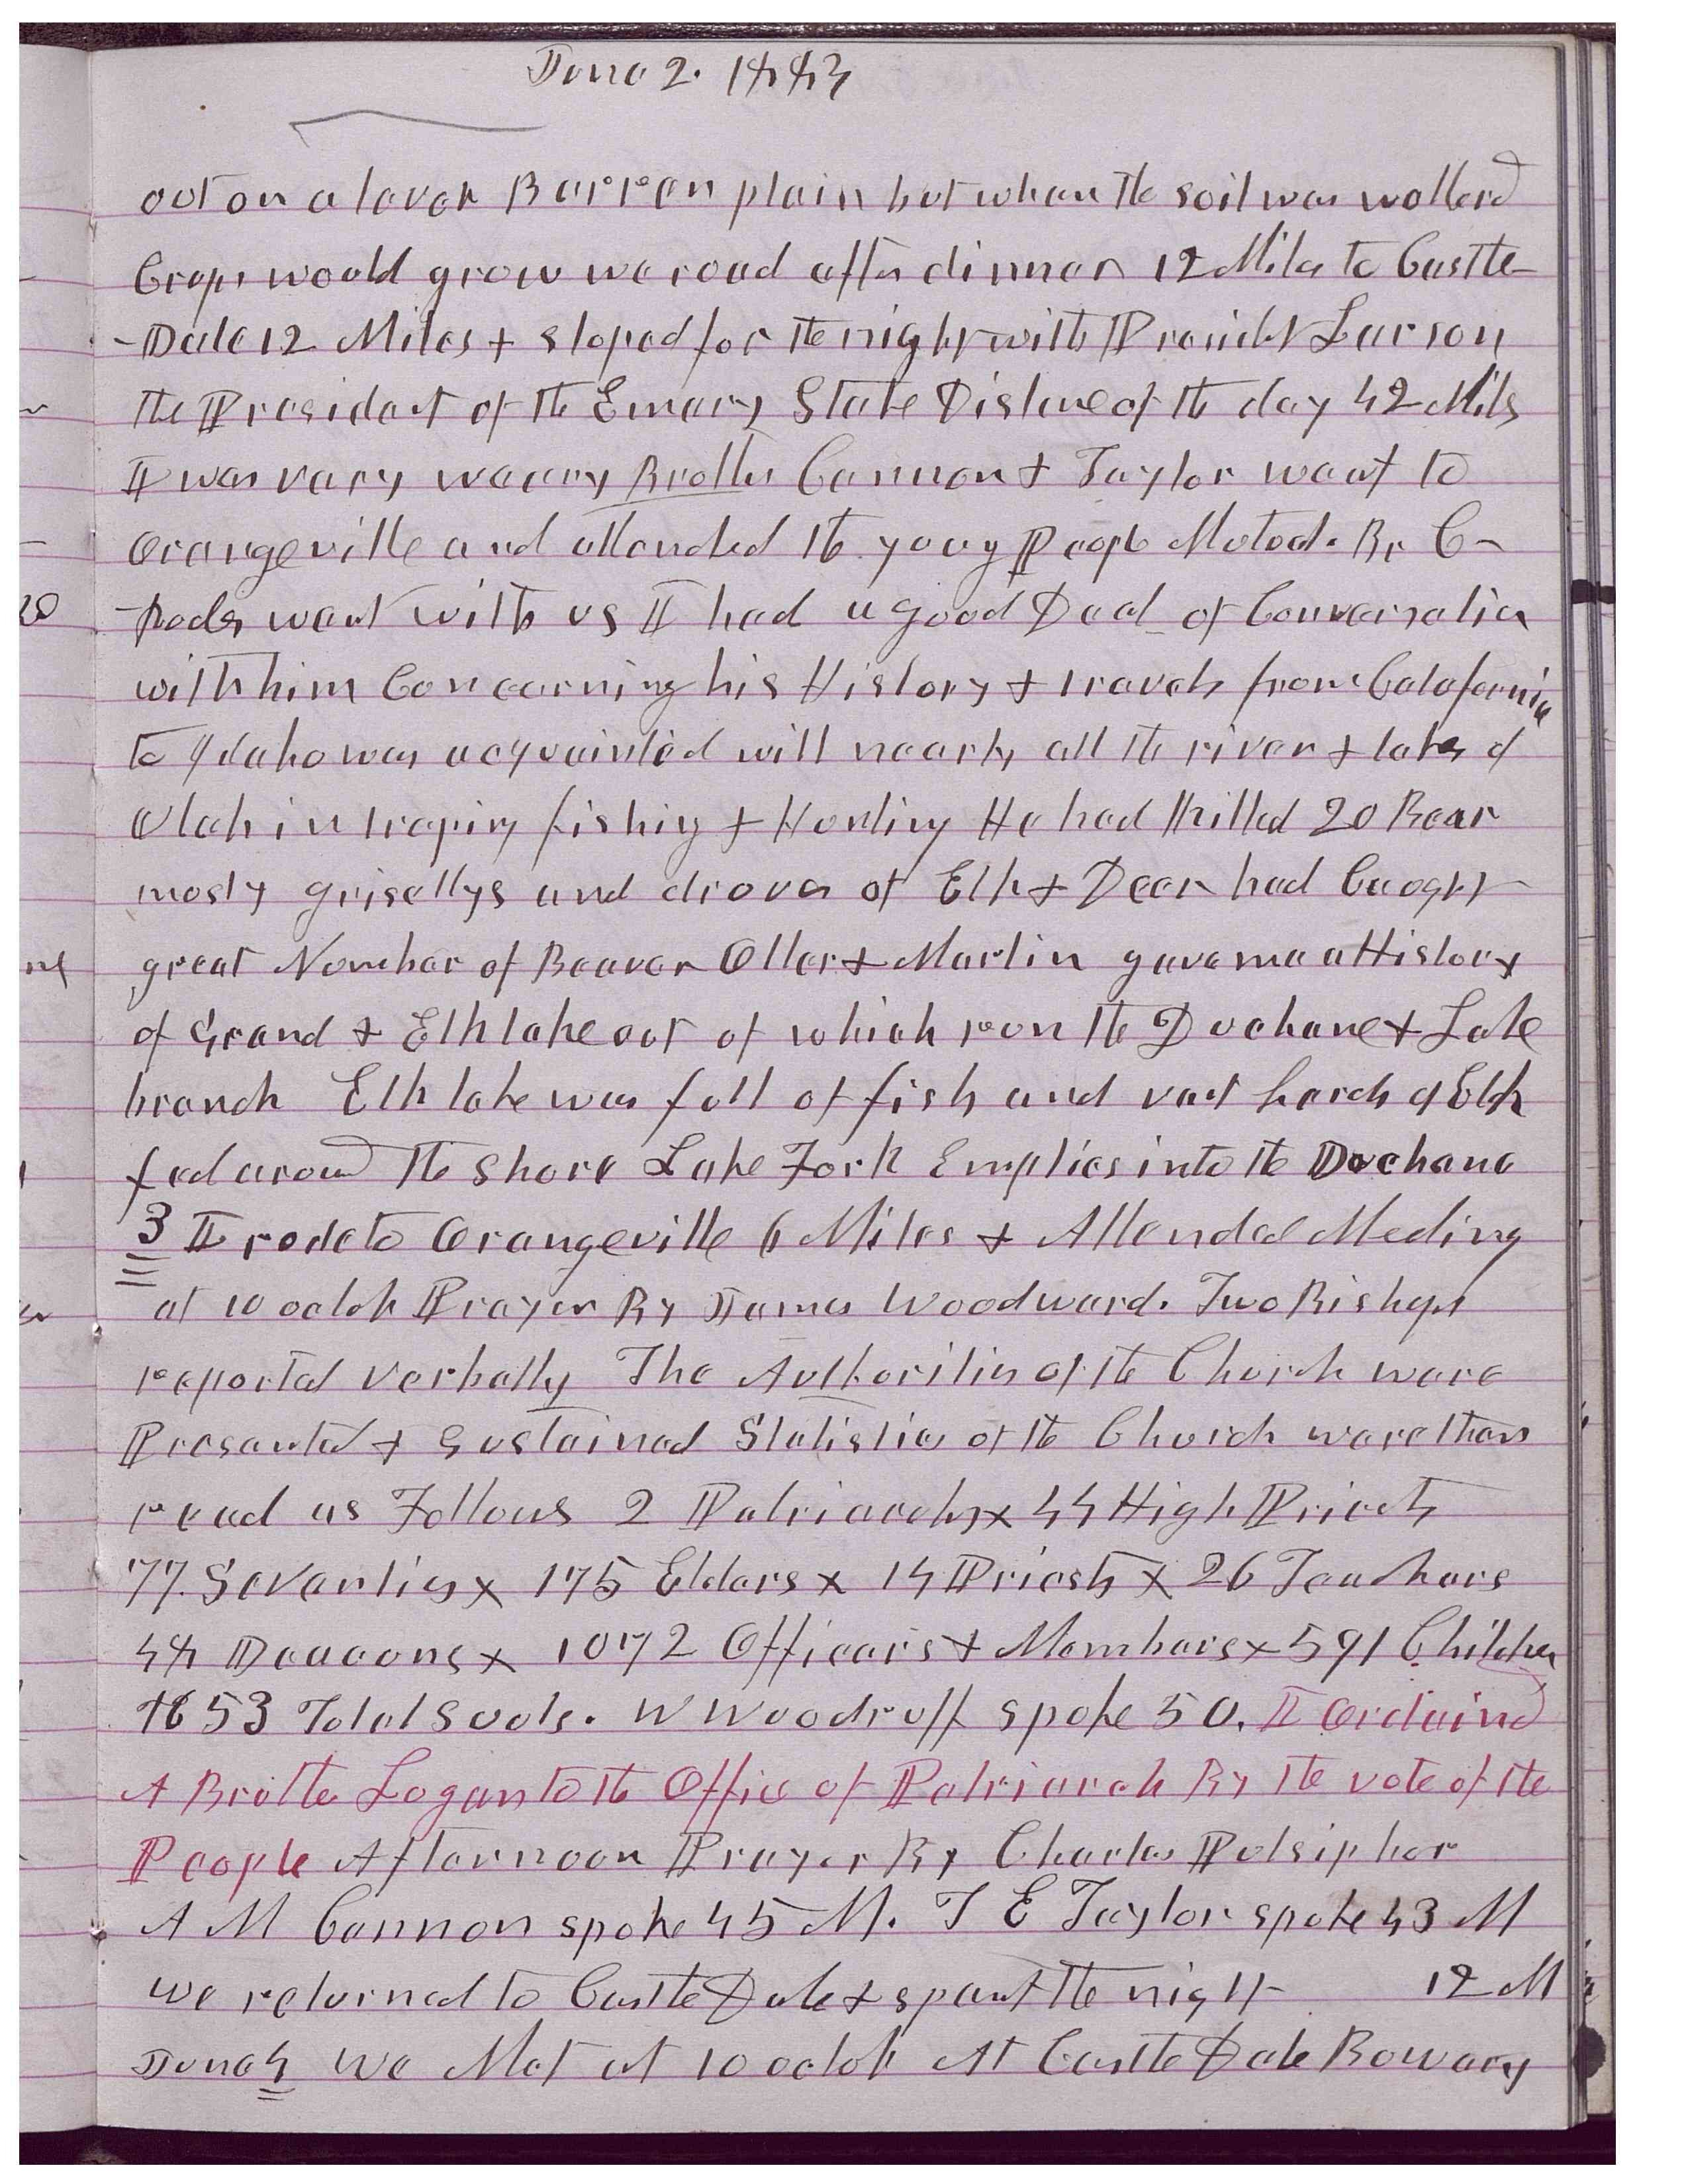 June 2. 1883
out on a lavel Barren plain but whare the soil was watterd
Crops would grow we road after dinner 12 Miles to Castle
-Dale 12 Miles & stoped for the night with Presidet Larson
the President of the Emery Stake Distance of the day 42 Mils
I was vary weary Brother Cannon & Taylor went to
Orangeville and attended the young People Mutual. Br C-
went with us I had a good Deal of Conversation
with him Concerning his History & travels from Calafornia
to Idaho was acquainted with nearly all the river & lakes of
Utah in traping fishing & Hunting He had killed 20 Bear
mosty grisellys and droves of Elk & Deer had Caught
great Number of Beaver Otter & Martin gave me a History
of Grand & Elk lake out of which run the Duchane & Lake
branch Elk lake was full of fish and vast herds of Elk
fed around the shore Lake Fork Empties into the Duchane
3 I rode to Orangeville 6 Miles & Attended Meeting
at 10 oclok Prayer By James Woodward. Two Bishops
reported verbally The Authorities of the Church ware
Presented & Sustained Statistics of the Church ware then
read as Follows 2 Patriarchs x 44 High Priests
77 Seventies x 175 Elders x 14 Priests x 26 Teachers
48 Deacons x 1072 Officers & Members x 591 Children
1653 Total Souls. W Woodruff spoke 50. I Ordaind
A Brother Logan to the Office of Patriarch By the vote of the
People Afternoon Prayer By Charles Pulsipher
A M Cannon spoke 45 M. T E Taylor spoke 43 M
we returned to Castle Dale & spent the night 12 M
June 4 We Met at 10 oclok At Castle Dale Bowery